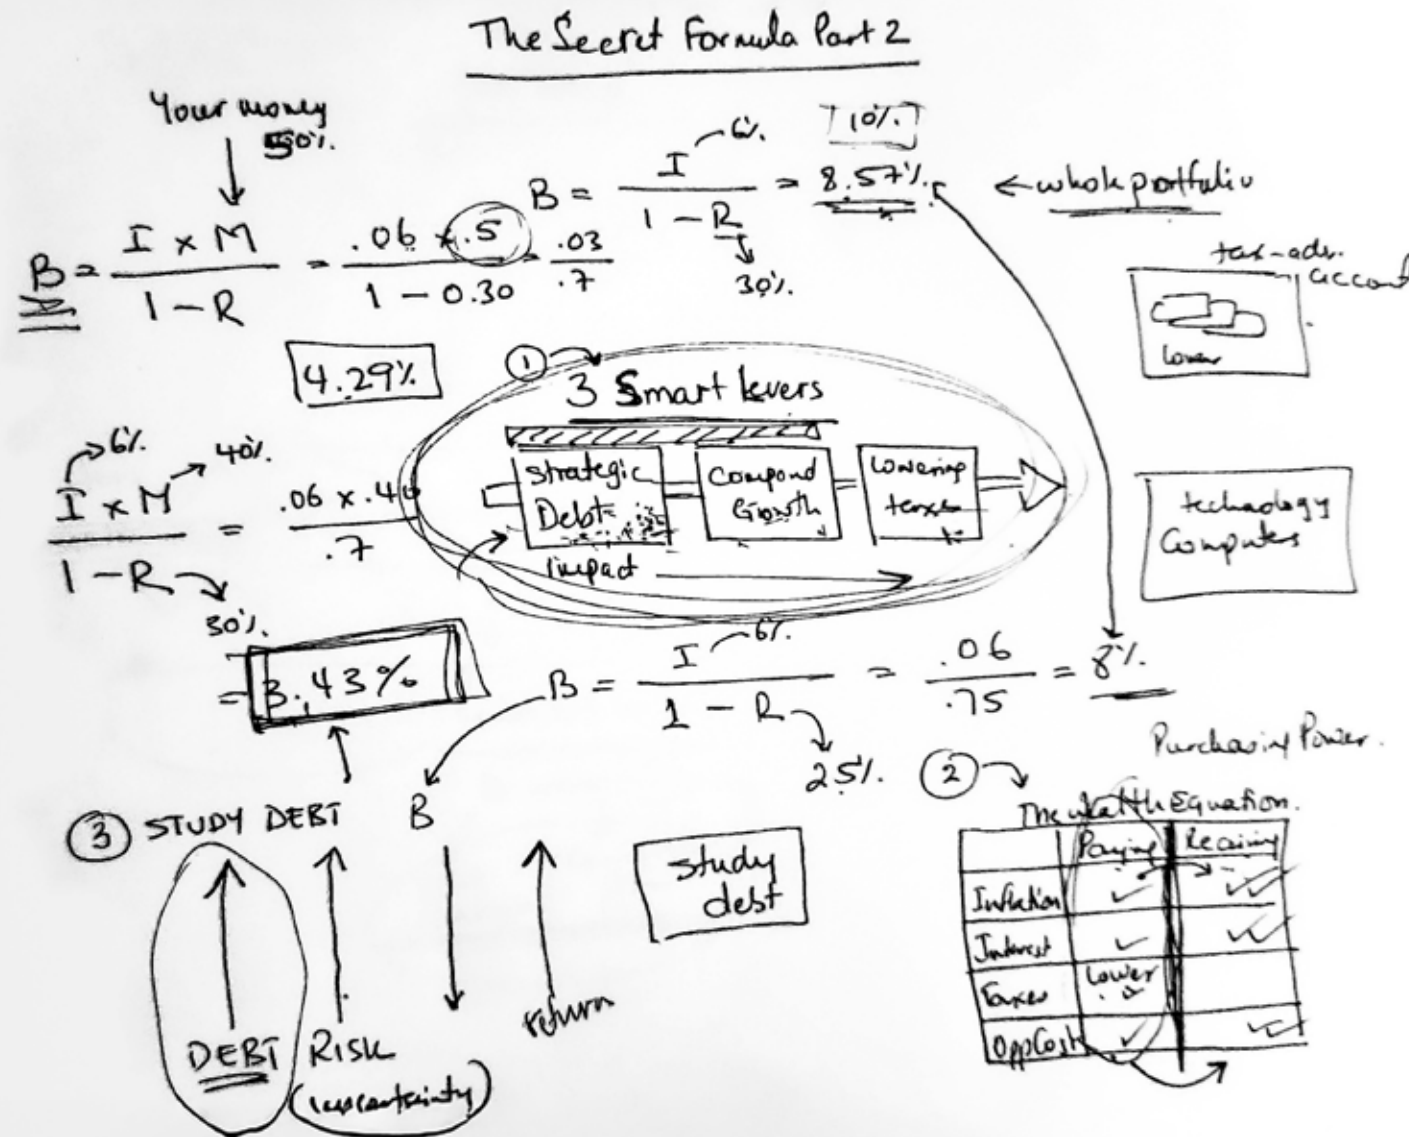 The Secret Formula Part 2
Your money
50%
B = I x M / 1 - R = .06 x .5 / 1 - 0.30 = .03 / .7
4.29%
B = I / 1 - R = 8.57%
6%
30%
10%
← whole portfolio
tax-adv. account
lower
① 3 Smart levers
Strategic Debt
Compound Growth
Lowering taxes
impact
technology
Computers
I x M / 1 - R = .06 x .40 / .7
6%
40%
30%
= 3.43%
B = I / 1 - R = .06 / .75 = 8%
6%
25%
③ STUDY DEBT
B
DEBT
RISK
(uncertainty)
return
Study
debt
Purchasing Power.
② The wealth Equation.
Paying Receiving
Inflation ✓ ✓✓
Interest ✓ ✓✓
Taxes Lower
Opp Cost ✓ ✓✓